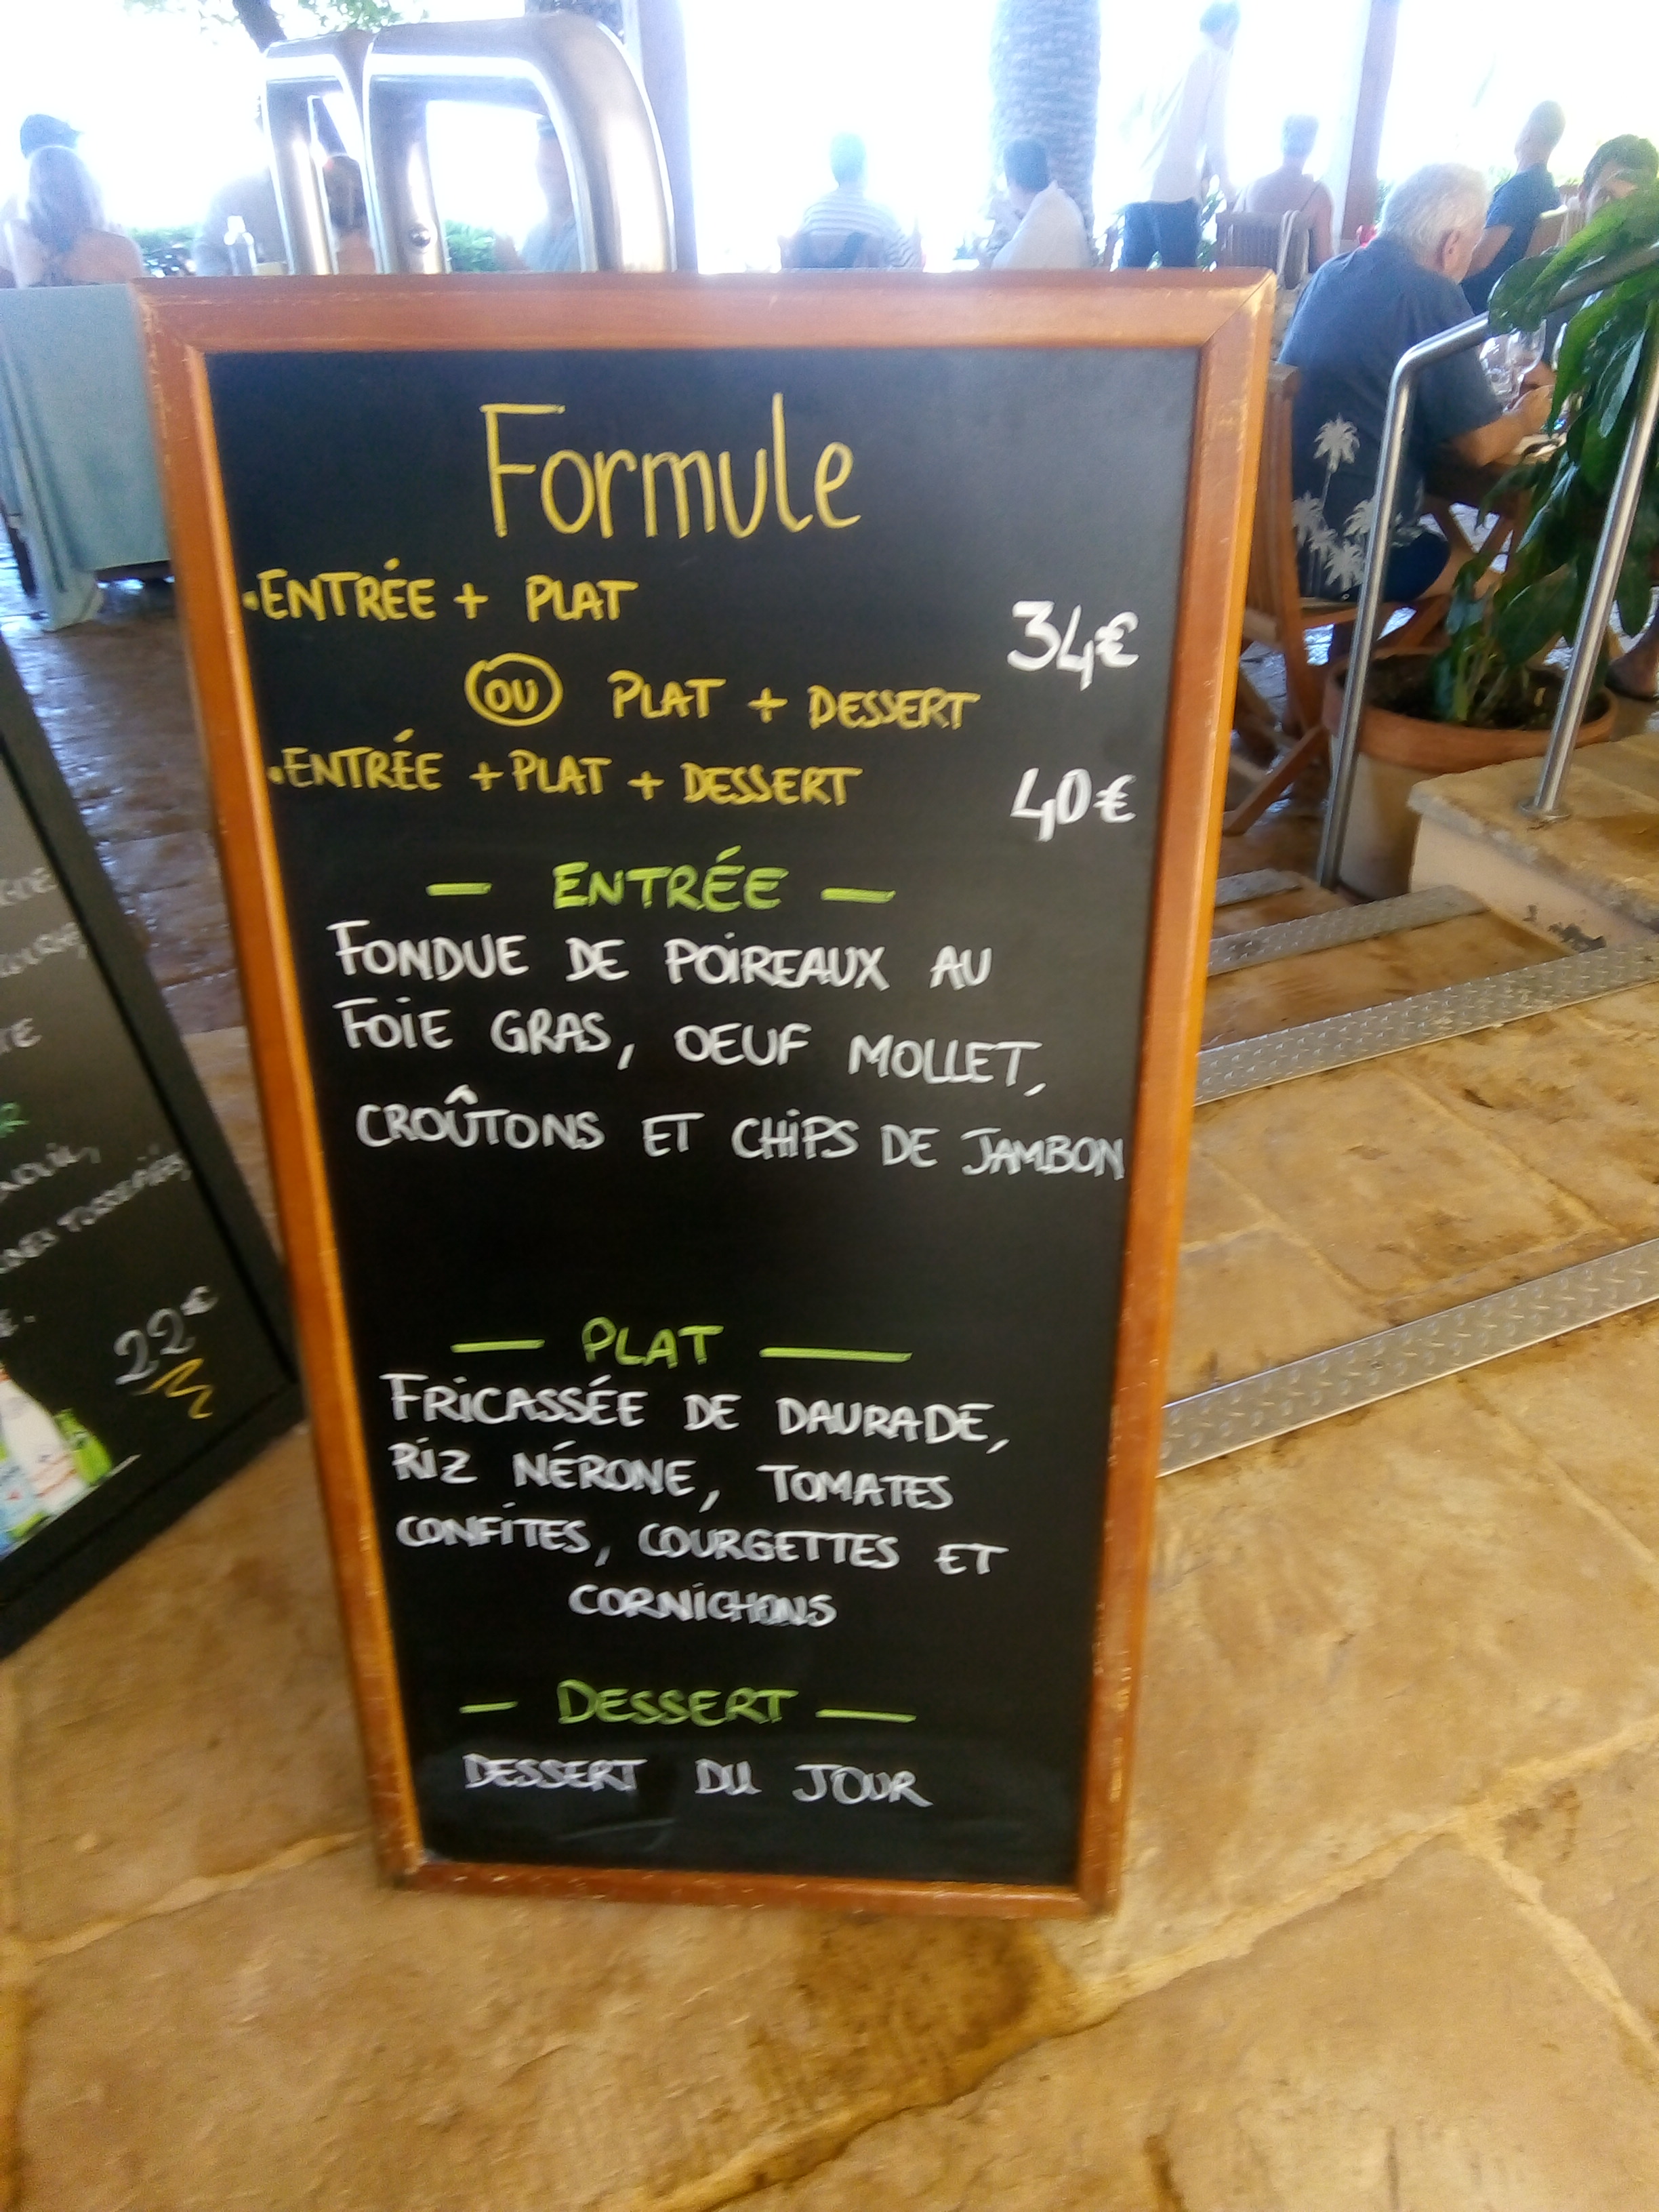 Formule
•ENTRÉE + PLAT
34€
OU PLAT + DESSERT
•ENTRÉE + PLAT + DESSERT 40€
— ENTRÉE —
FONDUE DE POIREAUX AU
FOIE GRAS, OEUF MOLLET,
CROÛTONS ET CHIPS DE JAMBON
— PLAT —
FRICASSÉE DE DAURADE,
RIZ NÉRONE, TOMATES
CONFITES, COURGETTES ET
CORNICHONS
— DESSERT —
DESSERT DU JOUR
22€